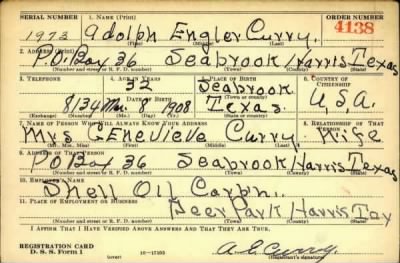 SERIAL NUMBER 1. NAME (Print) ORDER NUMBER
1973 Adolph Engler Curry. 4138
(First) (Middle) (Last)
2. ADDRESS (Print)
P.O. Box 36 Seabrook Harris Texas
(Number and street or R. F. D. number) (Town) (County) (State)
3. TELEPHONE 4. AGE IN YEARS 5. PLACE OF BIRTH 6. COUNTRY OF CITIZENSHIP
32 Seabrook
8/34 Mar. 8 1908 Texas. U.S.A.
7. NAME OF PERSON WHO WILL ALWAYS KNOW YOUR ADDRESS 8. RELATIONSHIP OF THAT PERSON
Mrs Genevieve Curry. Wife
9. ADDRESS OF THAT PERSON
P.O. Box 36 Seabrook Harris Texas
(Number and street or R. F. D. number) (Town) (County) (State)
10. EMPLOYER'S NAME
Shell Oil Corpn.
11. PLACE OF EMPLOYMENT OR BUSINESS
Deer Park Harris Tex
(Number and street or R. F. D. number) (Town) (County) (State)
I AFFIRM THAT I HAVE VERIFIED ABOVE ANSWERS AND THAT THEY ARE TRUE.
REGISTRATION CARD
D. S. S. Form 1 A. E. Curry.
(over)